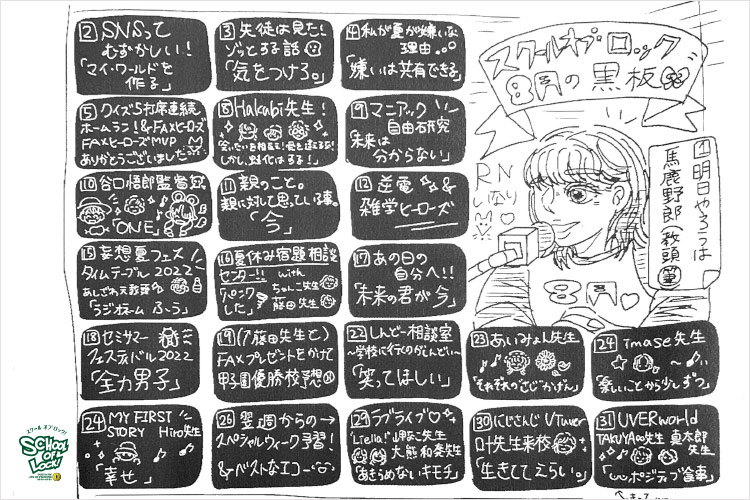 スクールオブロック
8月の黒板
RN
しなり
1 明日やろうは
馬鹿野郎(教頭)
8月
2 SNSって
むずかしい!
「マイ・ワールドを
作る」
3 生徒は見た!
ゾッとする話
「気をつけろ。」
4 私が夏が嫌いな
理由...
「嫌いは共有できる」
5 クイズ5打席連続
ホームラン!&FAXヒーローズ
FAXヒーローズMVP
ありがとうございました
8 Hakubi先生!
しかし、対化はする!」
9 マニアック
自由研究
「未来は
分からない」
10 谷口悟郎監督
「ONE」
11 親のこと。
親に対して思っている事。
「今」
12 逆電 &
雑学ヒーローズ
15 妄想夏フェス
タイムテーブル2022
あしざわ教頭の
「ラジオネーム ふぅう」
16 夏休み宿題相談
センター!! with
ちゃこ先生
「パンクした」
藤田先生
17 あの日の
自分へ!!
「未来の君が今」
18 セミサマー
フェスティバル2022
「全力男子」
19 (17藤田先生と)
FAXプレゼントをかけて
甲子園優勝校予想
22 しんどー相談室
〜学校に行くのがしんどい〜
「笑ってほしい」
23 あいみょん先生
「それぞれのさじかげん」
24 imase先生
「楽しいことから少しずつ」
24 MY FIRST
STORY Hiro先生
「幸せ」
26 翌週からの→
スペシャルウィーク予習!
&ベストなエコー
29 ラブライブ
「Liella!」岬なこ先生
大熊和奏先生
「あきらめないキモチ」
30 にじさんじ VTuber
叶先生来校
「生きててえらい。」
31 UVERworld
TAKUYA∞先生 真太郎
先生
スクールオブロック!
SCHOOL
OF
LOCK!